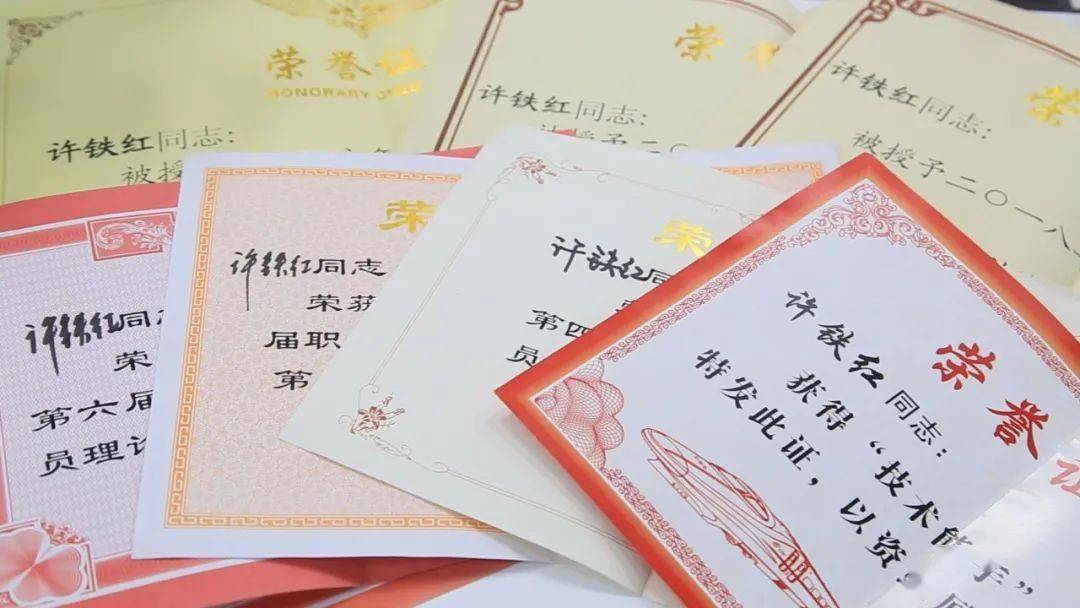 荣誉证
HONORARY
许铁红同志：
被授
许铁红同志：
被授予二〇
荣
许铁红同志：
被授予二〇一八
许铁红同志
荣
第六届
员理论
荣
许铁红同志
荣获
届职
第
荣
许铁红同
第四
员
荣誉证
许铁红同志：
获得“技术能手”
特发此证，以资